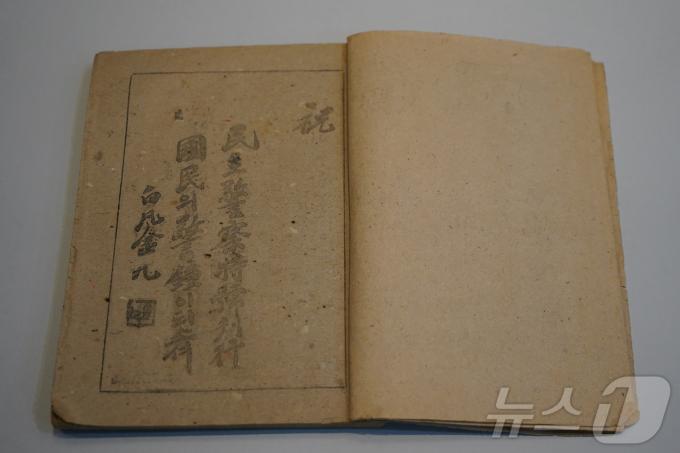 祝
民主警察特號刊行
國民의警鐘이되소서
白凡金九
뉴스1